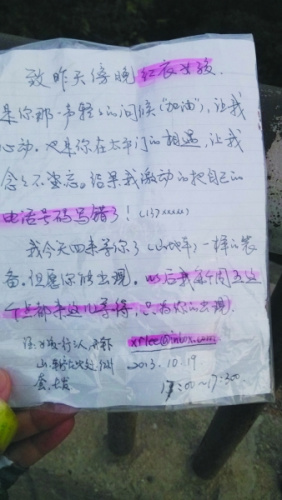 致昨天傍晚红衣女孩.
是你那一声轻轻的问候"加油",让我
心动.也是你在太平门的相遇,让我
念念不忘.结果我激动的把自己的
电话号码写错了!(137xxxxx)
我今天回来等你了(山地车)一样的装
备.但愿你能出现.以后我每个周五这
个点都来这儿等待,只为你的出现.
2013.10.19
17:00~17:300